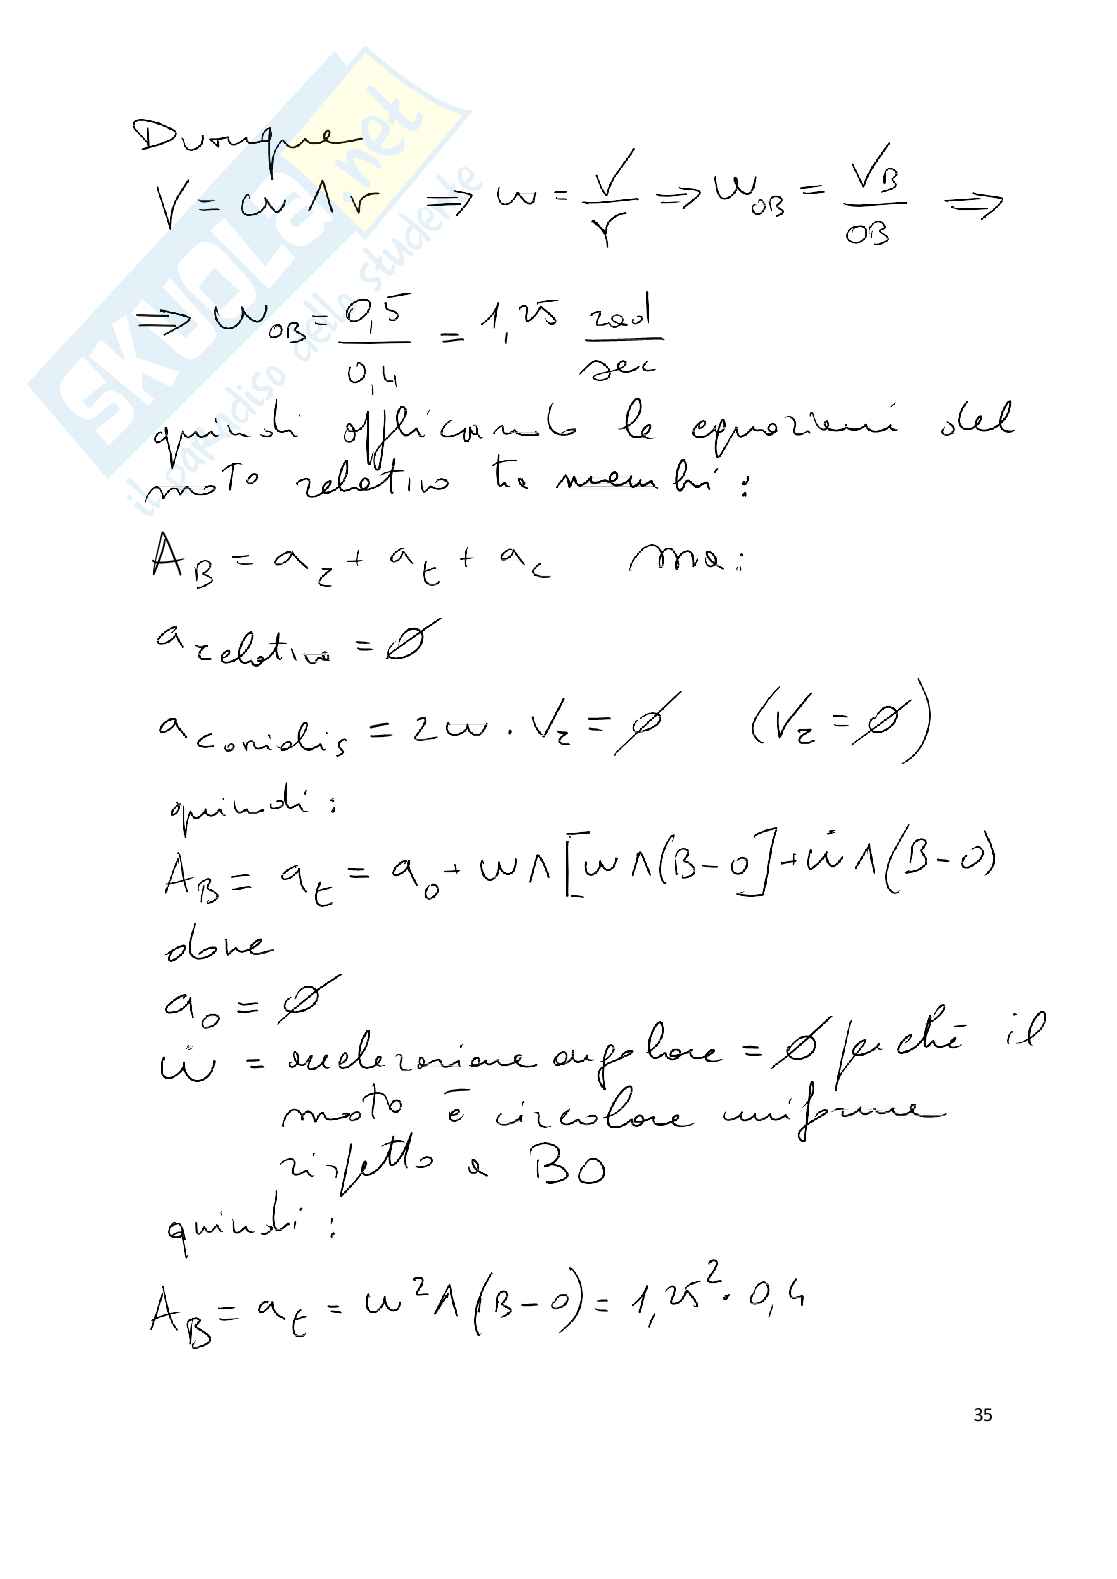 SKUOLA.net
il paradiso dello studente
Dunque
V = ω ∧ r ⇒ ω = V/r ⇒ ω_OB = V_B/OB ⇒
⇒ ω_OB = 0,5/0,4 = 1,25 rad/sec
quindi applicando le equazioni del
moto relativo tra membri:
A_B = a_r + a_t + a_c ma:
a_relativa = ∅
a_coriolis = 2ω · V_r = ∅ (V_r = ∅)
quindi:
A_B = a_t = a_o + ω ∧ [ω ∧ (B-O] + ω̇ ∧ (B-O)
dove
a_o = ∅
ω̇ = accelerazione angolare = ∅ perché il
moto è circolare uniforme
rispetto a BO
quindi:
A_B = a_t = ω² ∧ (B-O) = 1,25² · 0,4
35